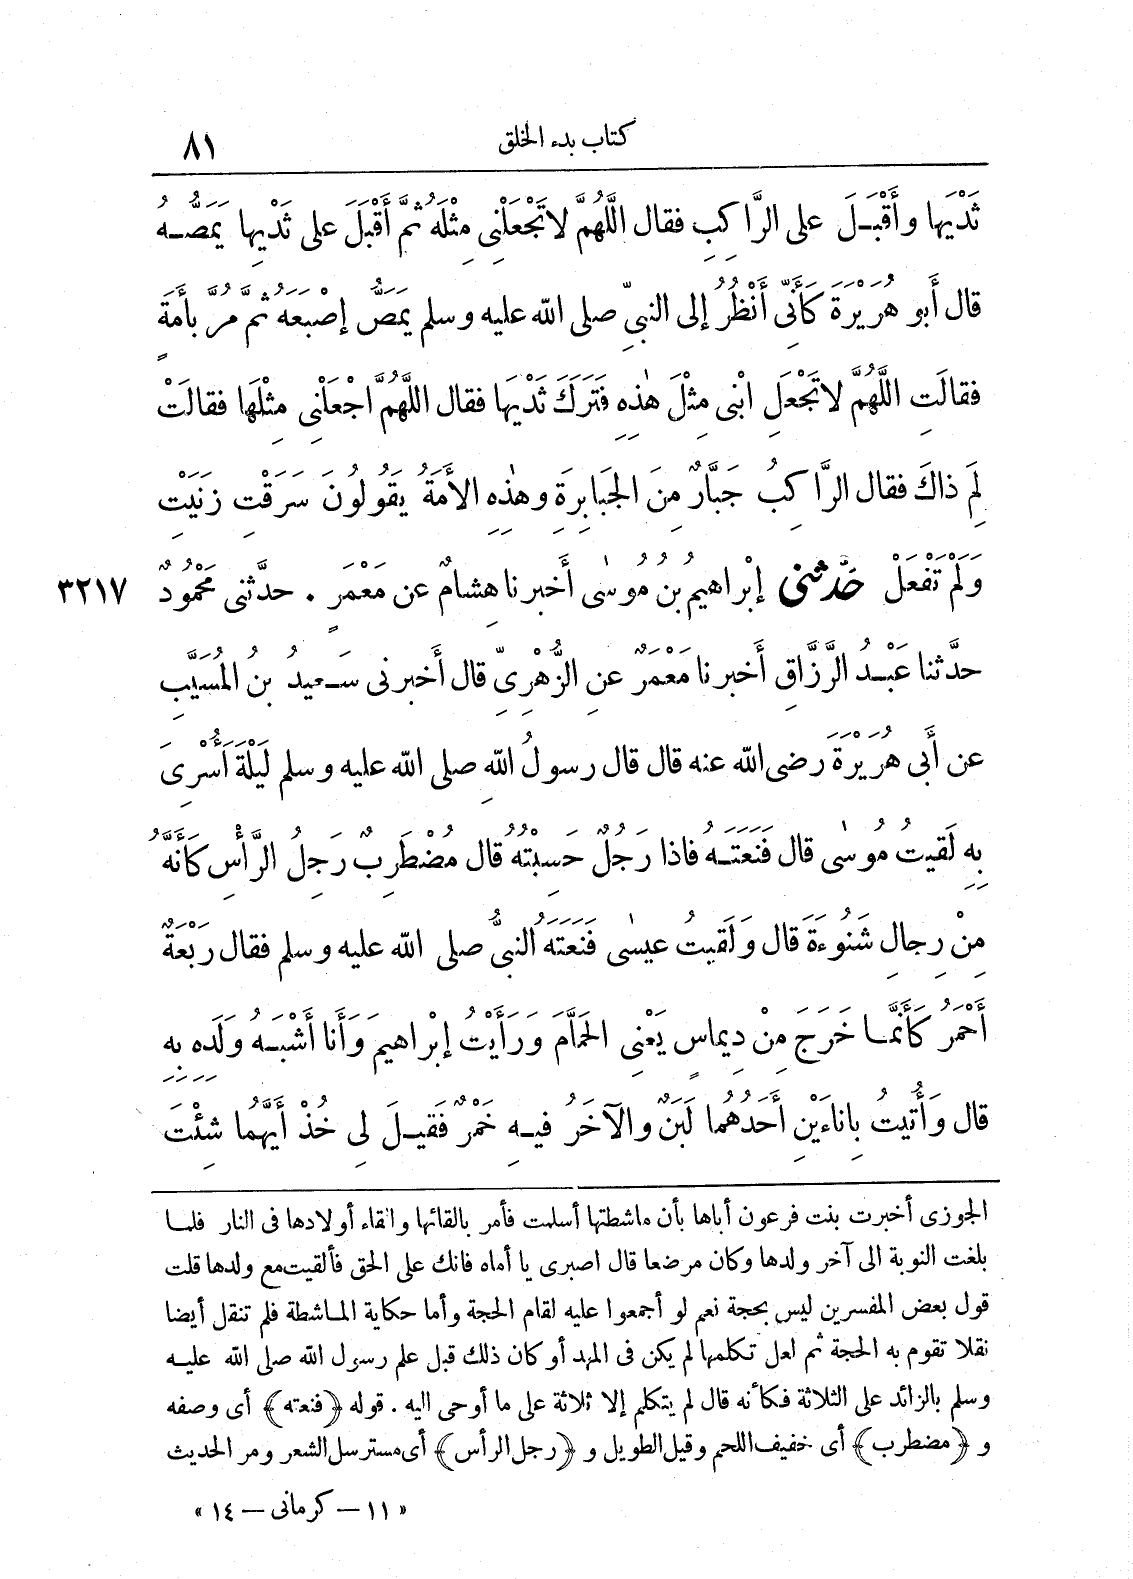 كتاب بدء الخلق
٨١
ثَدْيَها وأَقْبَلَ على الرَّاكِبِ فقال اللَّهُمَّ لاتَجْعَلْنِي مِثْلَهُ ثُمَّ أَقْبَلَ على ثَدْيِها يَمَصُّهُ
قال أَبو هُرَيْرَةَ كَأَنِّي أَنْظُرُ إلى النبيِّ صلى الله عليه وسلم يَمَصُّ إصْبَعَهُ ثُمَّ مُرَّ بأَمَةٍ
فقالَتِ اللَّهُمَّ لاتَجْعَلِ ابْنى مِثْلَ هٰذِهِ فَتَرَكَ ثَدْيَها فقال اللَّهُمَّ اجْعَلْنِى مِثْلَها فقالَتْ
لِمَ ذاكَ فقال الرَّاكِبُ جَبَّارٌ مِنَ الجَبابِرَةِ وهٰذِهِ الأَمَةُ يَقُولُونَ سَرَقْتِ زَنَيْتِ
وَلَمْ تَفْعَلْ حَدَّثَنى إبْراهيمُ بنُ مُوسٰى أَخبرنا هِشامٌ عن مَعْمَرٍ . حدَّثنى مَحْمُودٌ
٣٢١٧
حدَّثنا عَبْدُ الرَّزَّاقِ أَخبرنا مَعْمَرٌ عنِ الزُّهْرِىِّ قال أَخبرنى سَعيدُ بنُ المُسَيَّبِ
عن أَبى هُرَيْرَةَ رضى الله عنه قال قال رسولُ اللهِ صلى الله عليه وسلم لَيْلَةَ أُسْرِىَ
بِهِ لَقيتُ مُوسٰى قال فَنَعَتَهُ فاذا رَجُلٌ حَسِبْتُهُ قال مُضْطَرِبٌ رَجِلُ الرَّأْسِ كَأَنَّهُ
مِنْ رِجالِ شَنُوءَةَ قال وَلَقيتُ عيسٰى فَنَعَتَهُ النبىُّ صلى الله عليه وسلم فقال رَبْعَةٌ
أَحْمَرُ كَأَنَّمَا خَرَجَ مِنْ دِيماسٍ يَعْنِى الحَمَّامَ وَرَأَيْتُ إبْراهيمَ وَأَنا أَشْبَهُ وَلَدِهِ بِهِ
قال وَأُتيتُ بِاناءَيْنِ أَحَدُهُما لَبَنٌ والآخَرُ فيهِ خَمْرٌ فَقيلَ لِى خُذْ أَيَّهُما شِئْتَ
الجوزى أخبرت بنت فرعون أباها بأن ماشطتها أسلمت فأمر بالقائها والقاء أولادها فى النار فلما
بلغت النوبة الى آخر ولدها وكان مرضعا قال اصبرى يا أماه فانك على الحق فألقيت مع ولدها قلت
قول بعض المفسرين ليس بحجة نعم لو أجمعوا عليه لقام الحجة وأما حكاية الماشطة فلم تنقل أيضا
نقلا تقوم به الحجة ثم لعل تكلمها لم يكن فى المهد أو كان ذلك قبل علم رسول الله صلى الله عليه
وسلم بالزائد على الثلاثة فكأنه قال لم يتكلم إلا ثلاثة على ما أوحى اليه . قوله ﴿فنعته﴾ أى وصفه
و ﴿مضطرب﴾ أى خفيف اللحم وقيل الطويل و ﴿رجل الرأس﴾ أى مسترسل الشعر ومر الحديث
« ١١ – كرمانى – ١٤ »